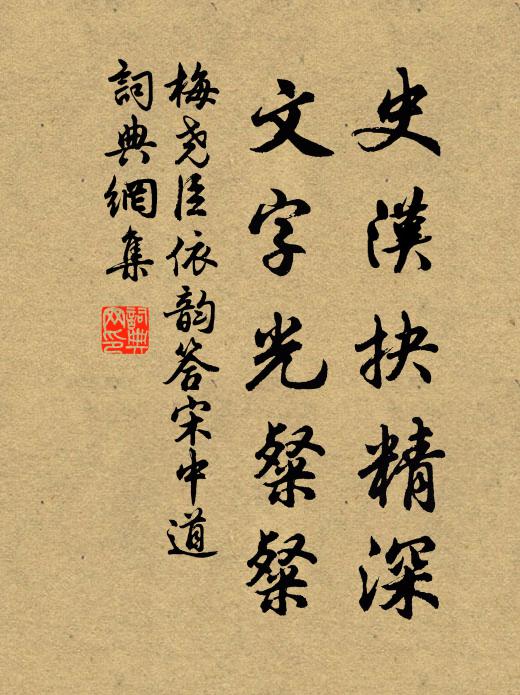 史漢抉精深
文字光粲粲
梅尧臣依韵答宋中道
詞典網集
詞典网印